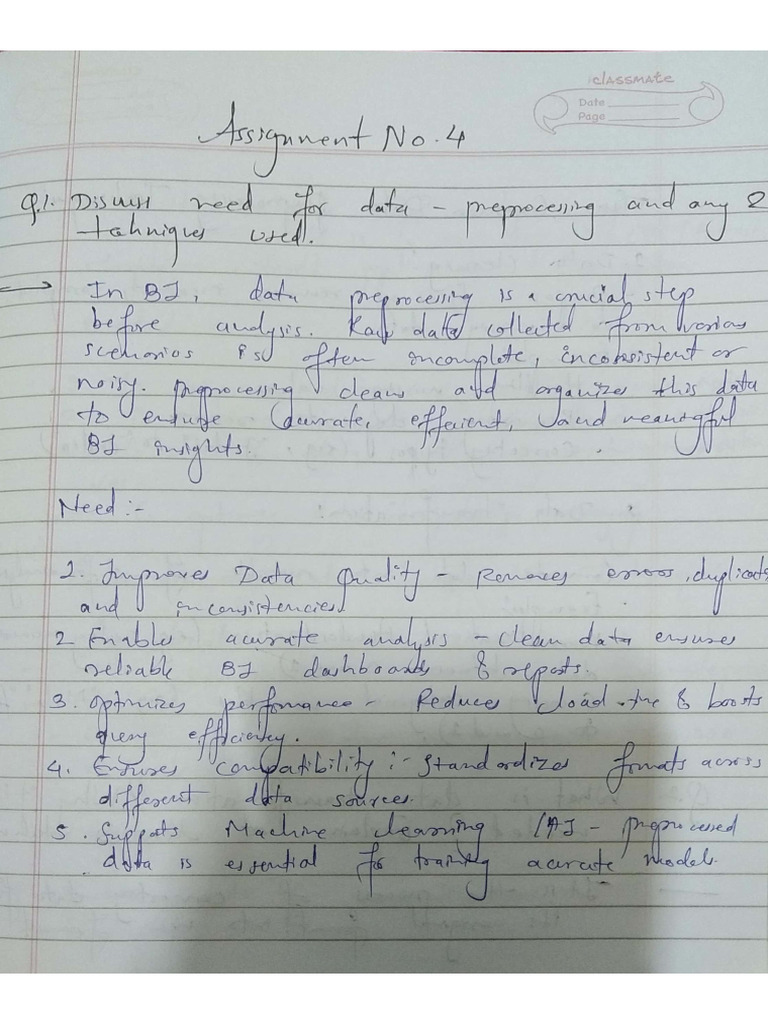 classmate
Date
Page
Assignment No. 4
Q.1. Discuss need for data - preprocessing and any 2
techniques used.
→ In BI, data preprocessing is a crucial step
before analysis. Raw data collected from various
scenarios is often incomplete, inconsistent or
noisy. preprocessing cleans and organizes this data
to ensure accurate, efficient, and meaningful
BI insights.
Need :-
1. Improves Data Quality - Removes errors, duplicats
and inconsistencies.
2 Enables acurate analysis - clean data ensures
reliable BI dashboards & reports.
3. Optimizes performance - Reduces load & boosts
query efficiency.
4. Ensures Compatibility :- Standardizes formats across
different data sources.
5. Supports Machine learning /AI - preprocessed
data is essential for training acurate models.